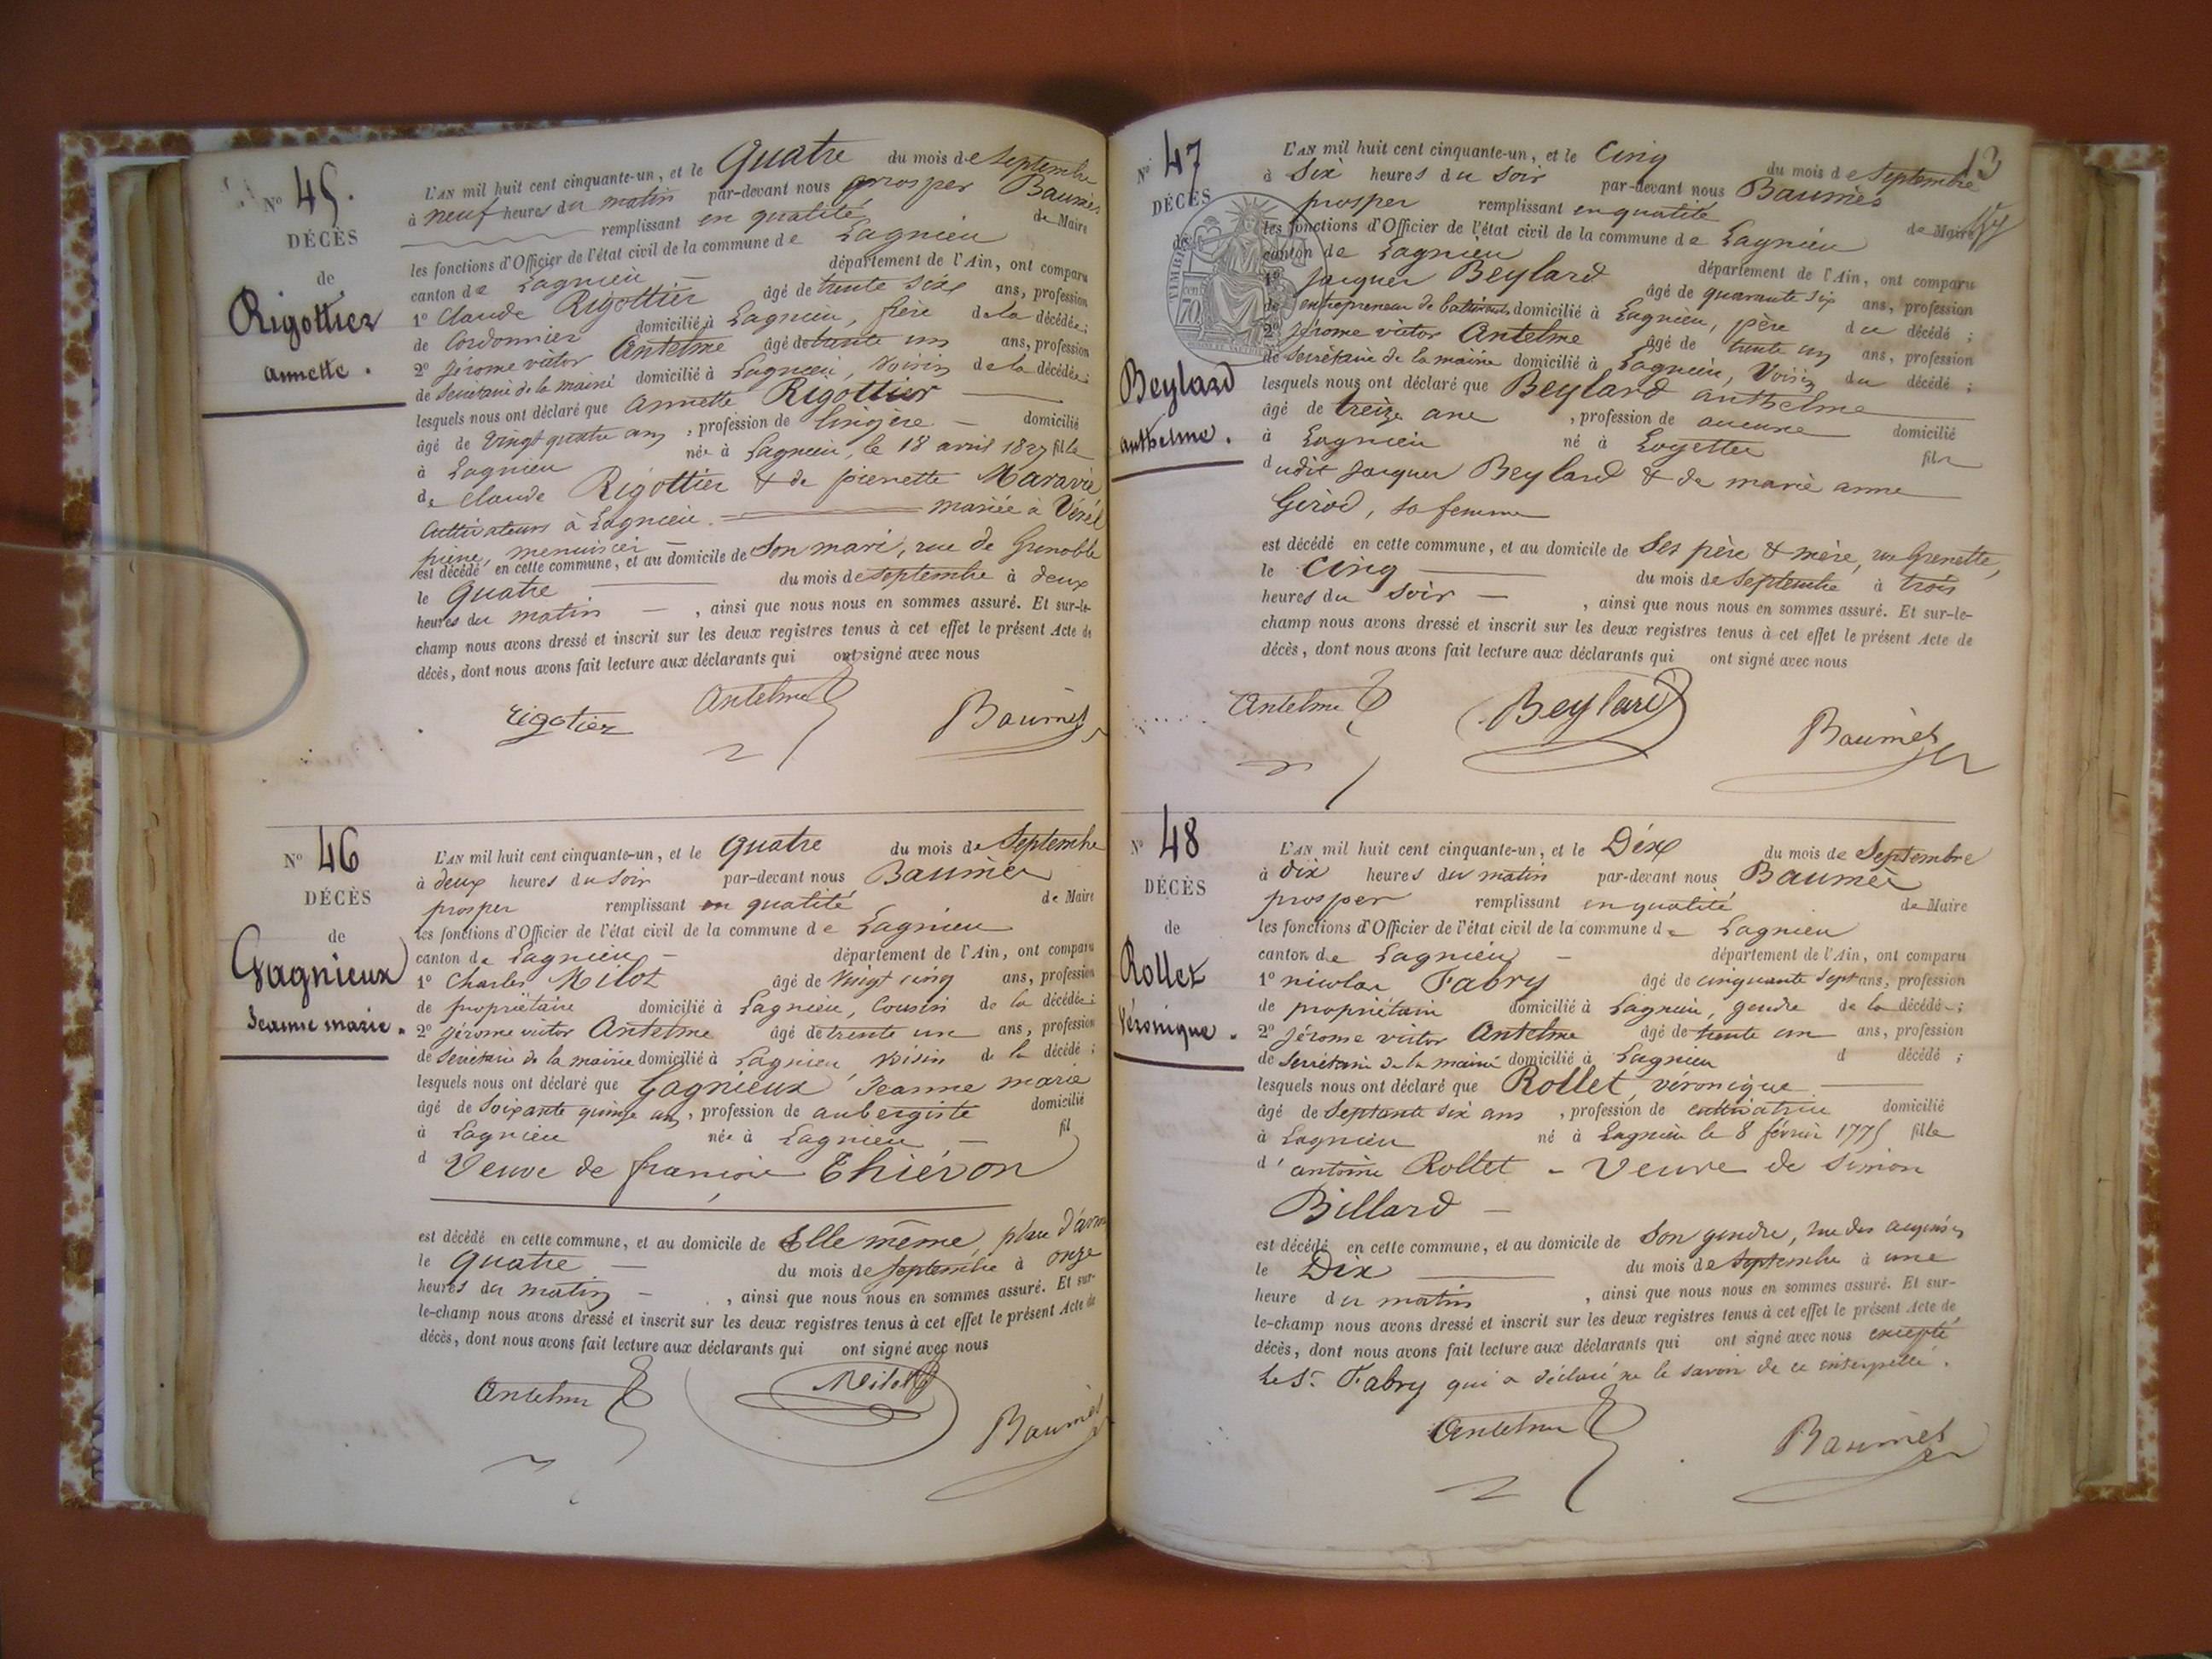 N° 45.
DÉCÈS
de
Rigottier
annette.
L'AN mil huit cent cinquante-un, et le Quatre du mois de Septembre
à neuf heures du matin par-devant nous prosper Baumès
remplissant en qualité de Maire
les fonctions d'Officier de l'état civil de la commune de Lagnieu
canton de Lagnieu département de l'Ain, ont comparu
1° Claude Rigottier âgé de trente six ans, profession
de Cordonnier domicilié à Lagnieu, frère de la décédée;
2° jérome victor Antelme âgé de trente un ans, profession
de Secrétaire de la mairie domicilié à Lagnieu, Voisin de la décédée;
lesquels nous ont déclaré que annette Rigottier
âgé de vingt quatre ans, profession de lingère domicilié
à Lagnieu née à Lagnieu, le 18 avril 1827 fille
de Claude Rigottier & de pierrette Maravie
Cultivateurs à Lagnieu. mariée à
pierre, menuisier
est décédé en cette commune, et au domicile de Son mari, rue de Grenoble
le Quatre du mois de septembre à deux
heures du matin, ainsi que nous nous en sommes assuré. Et sur-le-
champ nous avons dressé et inscrit sur les deux registres tenus à cet effet le présent Acte de
décès, dont nous avons fait lecture aux déclarants qui ont signé avec nous
Antelme
rigotier
Baumès
N° 46
DÉCÈS
de
Gagnieux
Jeanne marie.
L'AN mil huit cent cinquante-un, et le Quatre du mois de Septembre
à deux heures du Soir par-devant nous Baumès
prosper remplissant en qualité de Maire
les fonctions d'Officier de l'état civil de la commune de Lagnieu
canton de Lagnieu département de l'Ain, ont comparu
1° Charles Milot âgé de vingt cinq ans, profession
de propriétaire domicilié à Lagnieu, Cousin de la décédée;
2° jérome victor Antelme âgé de trente un ans, profession
de Secrétaire de la mairie domicilié à Lagnieu, voisin de la décédé;
lesquels nous ont déclaré que Gagnieux Jeanne marie
âgé de Soixante quinze ans, profession de aubergiste domicilié
à Lagnieu née à Lagnieu fil
d Veuve de françois Thiévon
est décédé en cette commune, et au domicile de Elle même, place d'armes
le Quatre du mois de septembre à onze
heures du matin, ainsi que nous nous en sommes assuré. Et sur-
le-champ nous avons dressé et inscrit sur les deux registres tenus à cet effet le présent Acte de
décès, dont nous avons fait lecture aux déclarants qui ont signé avec nous
Antelme
Milot
Baumès
13
N° 47
DÉCÈS
de
Beylard
anthelme.
L'AN mil huit cent cinquante-un, et le Cinq du mois de Septembre
à Six heures du Soir par-devant nous Baumès
prosper remplissant en qualité de Maire
les fonctions d'Officier de l'état civil de la commune de Lagnieu
canton de Lagnieu département de l'Ain, ont comparu
1° jacques Beylard âgé de quarante six ans, profession
de entrepreneur de batiments domicilié à Lagnieu, père du décédé;
2° jérome victor Antelme âgé de trente un ans, profession
de Secrétaire de la mairie domicilié à Lagnieu, Voisin du décédé;
lesquels nous ont déclaré que Beylard anthelme
âgé de treize ans, profession de aucune domicilié
à Lagnieu né à Loyettes fils
dudit jacques Beylard & de marie anne
Girod, sa femme
est décédé en cette commune, et au domicile de Ses père & mère, rue Grenette,
le Cinq du mois de Septembre à trois
heures du Soir, ainsi que nous nous en sommes assuré. Et sur-le-
champ nous avons dressé et inscrit sur les deux registres tenus à cet effet le présent Acte de
décès, dont nous avons fait lecture aux déclarants qui ont signé avec nous
Antelme
Beylard
Baumès
N° 48
DÉCÈS
de
Rollet
Véronique.
L'AN mil huit cent cinquante-un, et le Dix du mois de Septembre
à dix heures du matin par-devant nous Baumès
prosper remplissant en qualité de Maire
les fonctions d'Officier de l'état civil de la commune de Lagnieu
canton de Lagnieu département de l'Ain, ont comparu
1° nicolas Fabry âgé de cinquante sept ans, profession
de propriétaire domicilié à Lagnieu, gendre de la décédé;
2° jérome victor Antelme âgé de trente un ans, profession
de Secrétaire de la mairie domicilié à Lagnieu d décédé;
lesquels nous ont déclaré que Rollet véronique
âgé de Septante six ans, profession de cultivatrice domicilié
à Lagnieu né à Lagnieu le 8 février 1775 fille
d'antoine Rollet - Veuve de Simon
Billard
est décédé en cette commune, et au domicile de Son gendre, rue des
le Dix du mois de Septembre à une
heure du matin, ainsi que nous nous en sommes assuré. Et sur-
le-champ nous avons dressé et inscrit sur les deux registres tenus à cet effet le présent Acte de
décès, dont nous avons fait lecture aux déclarants qui ont signé avec nous excepté
le Sr. Fabry qui a déclaré ne le savoir de ce interpellé.
Antelme
Baumès